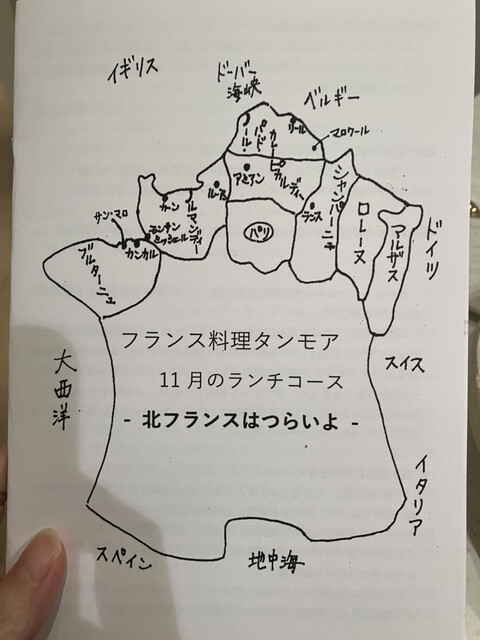 イギリス
ドーバー
海峡
ベルギー
ノール・パ・ド・カレー
リール
マロワール
ピカルディー
アミアン
ルーアン
シャンパーニュ
ランス
ロレーヌ
アルザス
ドイツ
カーン
ノルマンディー
サン・マロ
モンサン
ミッシェル
カンカル
ブルターニュ
パリ
フランス料理タンモア
11月のランチコース
- 北フランスはつらいよ -
大西洋
スイス
イタリア
スペイン
地中海